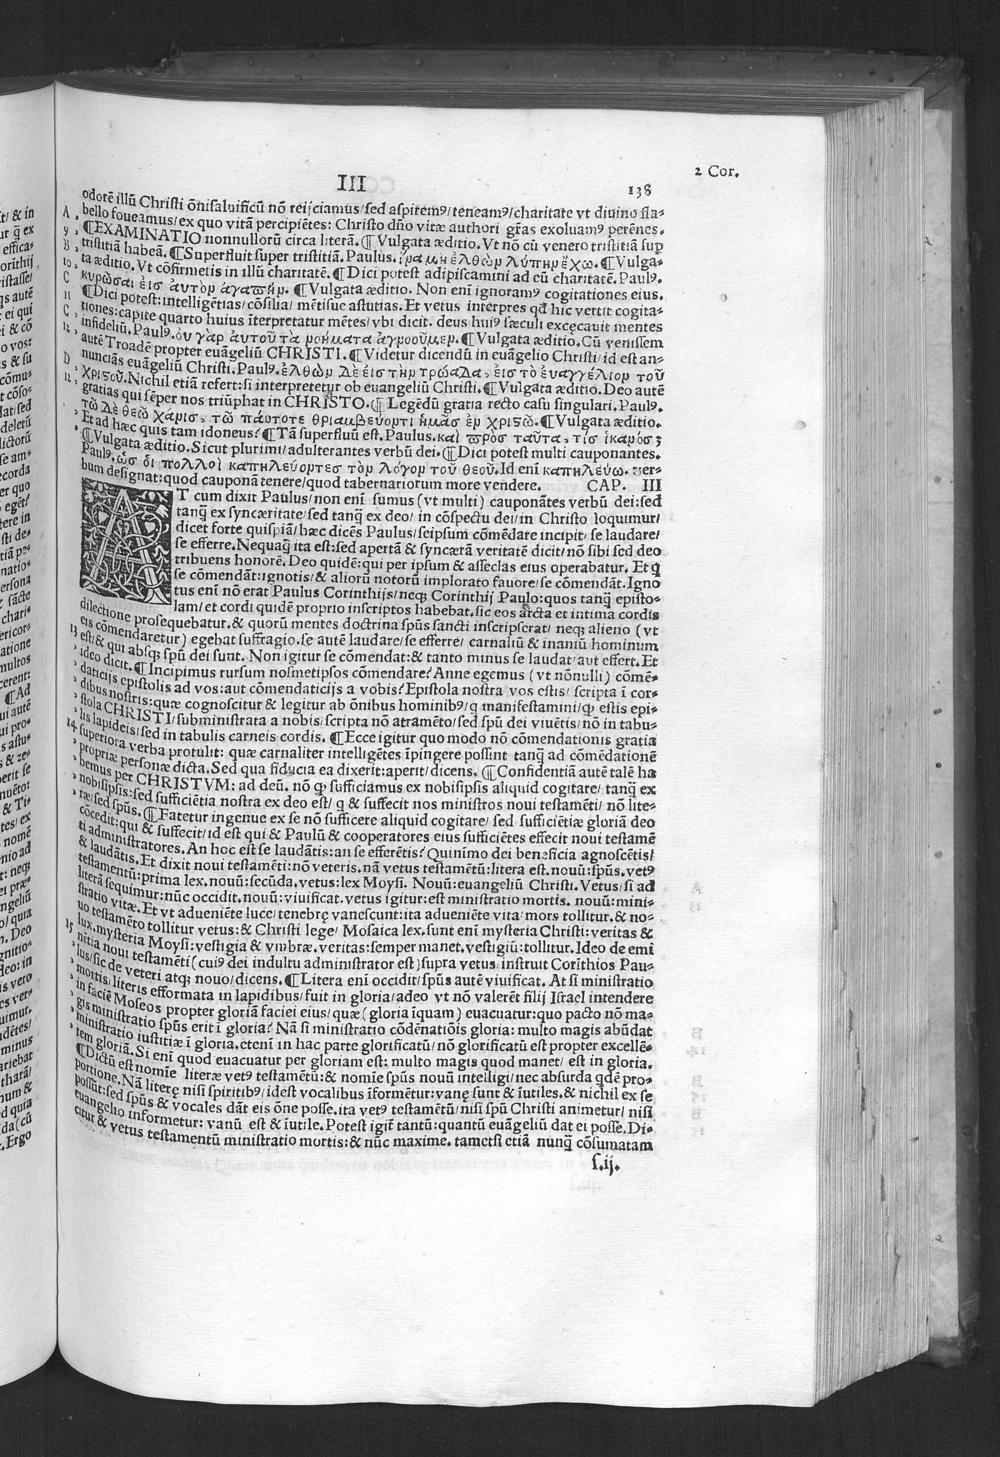 III
138
2 Cor.
odorē illũ Christi ōnisaluificũ nō reijciamus/sed aspiremꝰ/teneamꝰ/charitate vt diuino fla⸗
A , bello foueamus/ex quo vitā percipiētes: Christo dño vitæ authori gr̄as exoluamꝰ perēnes.
9 , ¶EXAMINATIO nonnullorũ circa literā.¶ Vulgata æditio. Vt nō cũ venero tristitiā sup
B , tristitiā habeā. ¶Superfluit super tristitiā. Paulus. ἵνα μὴ ἐλθὼν λύπην ἔχω. ¶Vulga⸗
10 , ta æditio. Vt cōfirmetis in illũ charitatē. ¶Dici potest adipiscamini ad eũ charitatē. Paulꝰ.
C κυρῶσαι εἰς αὐτὸν ἀγάπην. ¶Vulgata æditio. Non enī ignoramꝰ cogitationes eius.
11 ¶Dici potest: intelligētias/cōsilia/ mētisue astutias. Et vetus interpres qđ hic vertit cogita⸗
C , tiones: capite quarto huius īterpretatur mētes/vbi dicit. deus huiꝰ sæculi excęcauit mentes
12 , infideliũ. Paulꝰ. οὐ γὰρ αὐτοῦ τὰ νοήματα ἀγνοοῦμεν. ¶Vulgata æditio. Cũ venissem
, autē Troadē propter euāgeliũ CHRISTI. ¶Videtur dicendũ in euāgelio Christi/id est an⸗
D nuncians euāgeliũ Christi. Paulꝰ. ἐλθὼν δὲ εἰς τὴν τρωάδα, εἰς τὸ ἐυαγγέλιον τοῦ
12 , χριστοῦ. Nichil etiā refert: si interpretetur ob euangeliũ Christi. ¶Vulgata æditio. Deo autē
, gratias qui sēper nos triũphat in CHRISTO.¶ Legēdũ gratia recto casu singulari. Paulꝰ.
τῶ δὲ θεῶ χάρις, τῶ πάντοτε θριαμβεύοντι ἡμᾶς ἐν χριστῶ. ¶Vulgata æditio.
, Et ad hæc quis tam idoneus? ¶Tā superfluũ est. Paulus. καὶ πρὸς ταῦτα, τίς ἱκανός;
, ¶Vulgata æditio. Sicut plurimi/ adulterantes verbũ dei. ¶Dici potest multi cauponantes.
Paulꝰ. ὡς ὁι πολλοὶ καπηλεύοντες τὸν λόγον τοῦ θεοῦ. Id enī καπηλεύω. ver⸗
bum designat: quod cauponā tenere/ quod tabernariorum more vendere. CAP. III
AT cum dixit Paulus/non enī sumus (vt multi) cauponātes verbũ dei: sed
tanq̄ ex syncæritate/sed tanq̄ ex deo/ in cōspectu dei/in Christo loquimur/
dicet forte quispiā/ hæc dicēs Paulus/seipsum cōmēdare incipit/ se laudare/
se efferre. Nequaq̄ ita est: sed apertā & syncærā veritatē dicit/nō sibi sed deo
tribuens honorē. Deo quidē: qui per ipsum & asseclas eius operabatur. Et q̄
se cōmendāt: ignotis/& aliorũ notorũ implorato fauore/se cōmendāt. Igno
tus enī nō erat Paulus Corinthijs/neqꝫ Corinthij Paulo: quos tanq̄ episto⸗
lam/et cordi quidē proprio inscriptos habebat. sic eos arcta et intima cordis
dilectione prosequebatur. & quorũ mentes doctrina spũs sancti inscripserat/ neqꝫ alieno (vt
eis cōmendaretur) egebat suffragio. se autē laudare/se efferre/ carnaliũ & inaniũ hominum
13 est/& qui absqꝫ spũ dei sunt. Non igitur se cōmendat: & tanto minus se laudat aut effert. Et
ideo dicit. ¶Incipimus rursum nosmetipsos cōmendare? Anne egemus (vt nōnulli) cōmē⸗
, daticijs epistolis ad vos: aut cōmendaticijs a vobis? Epistola nostra vos estis/ scripta ī cor⸗
, dibus nostris: quæ cognoscitur & legitur ab ōnibus hominibꝰ/q manifestamini/qꝫ estis epi⸗
, stola CHRISTI/subministrata a nobis/scripta nō atramēto/sed spũ dei viuētis/nō in tabu⸗
, lis lapideis/sed in tabulis carneis cordis. ¶Ecce igitur quo modo nō cōmendationis gratia
14 superiora verba protulit: quæ carnaliter intelligētes īpingere possint tanq̄ ad cōmēdationē
propriæ personæ dicta. Sed qua fiducia ea dixerit: aperit/dicens. ¶Confidentiā autē talē ha
, bemus per CHRISTVM: ad deũ. nō qꝫ sufficiamus ex nobisipsis aliquid cogitare/ tanq̄ ex
, nobisipsis: sed sufficiētia nostra ex deo est/ q & suffecit nos ministros noui testamēti/ nō lite⸗
, ræ/sed spũs. ¶Fatetur ingenue ex se nō sufficere aliquid cogitare/ sed sufficiētiæ gloriā deo
cōcedit: qui & suffecit/id est qui & Paulũ & cooperatores eius sufficiētes effecit noui testamē
ti administratores. An hoc est se laudātis: an se efferētis? Quinimo dei beneficia agnoscētis/
& laudātis. Et dixit noui testamēti: nō veteris. nā vetus testamētũ: litera est. nouũ: spũs. vetꝰ
testamentũ: prima lex. nouũ: secũda. vetus: lex Moysi. Nouũ: euangeliũ Christi. Vetus/si ad
literā sequimur: nũc occidit. nouũ: viuificat. vetus igitur: est ministratio mortis. nouũ: mini⸗
stratio vitæ. Et vt adueniēte luce/ tenebrę vanescunt: ita adueniēte vita/ mors tollitur. & no⸗
uo testamēto tollitur vetus: & Christi lege/ Mosaica lex. sunt enī mysteria Christi: veritas &
15 lux. mysteria Moysi: vestigia & vmbræ. veritas: semper manet. vestigiũ: tollitur. Ideo de emi
nētia noui testamēti (cuiꝰ dei indultu administrator est) supra vetus/instruit Corīthios Pau⸗
lus/sic de veteri atqꝫ nouo/dicens. ¶Litera enī occidit/spũs autē viuificat. At si ministratio
, mortis/literis efformata in lapidibus/ fuit in gloria/adeo vt nō valerēt filij Israel intendere
, in faciē Moseos propter gloriā faciei eius/ quæ (gloria īquam) euacuatur: quo pacto nō ma⸗
, gis ministratio spũs erit ī gloria? Nā si ministratio cōdēnatiōis gloria: multo magis abũdat
, ministratio iustitiæ ī gloria. etenī in hac parte glorificatũ/ nō glorificatũ est propter excellē⸗
, tem gloriā. Si enī quod euacuatur per gloriam est: multo magis quod manet/ est in gloria.
¶Dictũ est nomīe literæ vetꝰ testamētũ: & nomīe spũs nouũ intelligi/nec absurda qdē pro⸗
portione. Nā literę nisi spiritibꝰ/idest vocalibus īformētur: vanę sunt & īutiles. & nichil ex se
possũt: sed spũs & vocales dāt eis ōne posse. ita vetꝰ testamētũ/ nisi spũ Christi animetur/ nisi
euangelio informetur: vanũ est & īutile. Potest igiť tantũ: quantũ euāgeliũ dat ei posse. Di⸗
citur & vetus testamentũ ministratio mortis: & nũc maxime. tametsi etiā nunq̄ cōsumatam
s.ij.